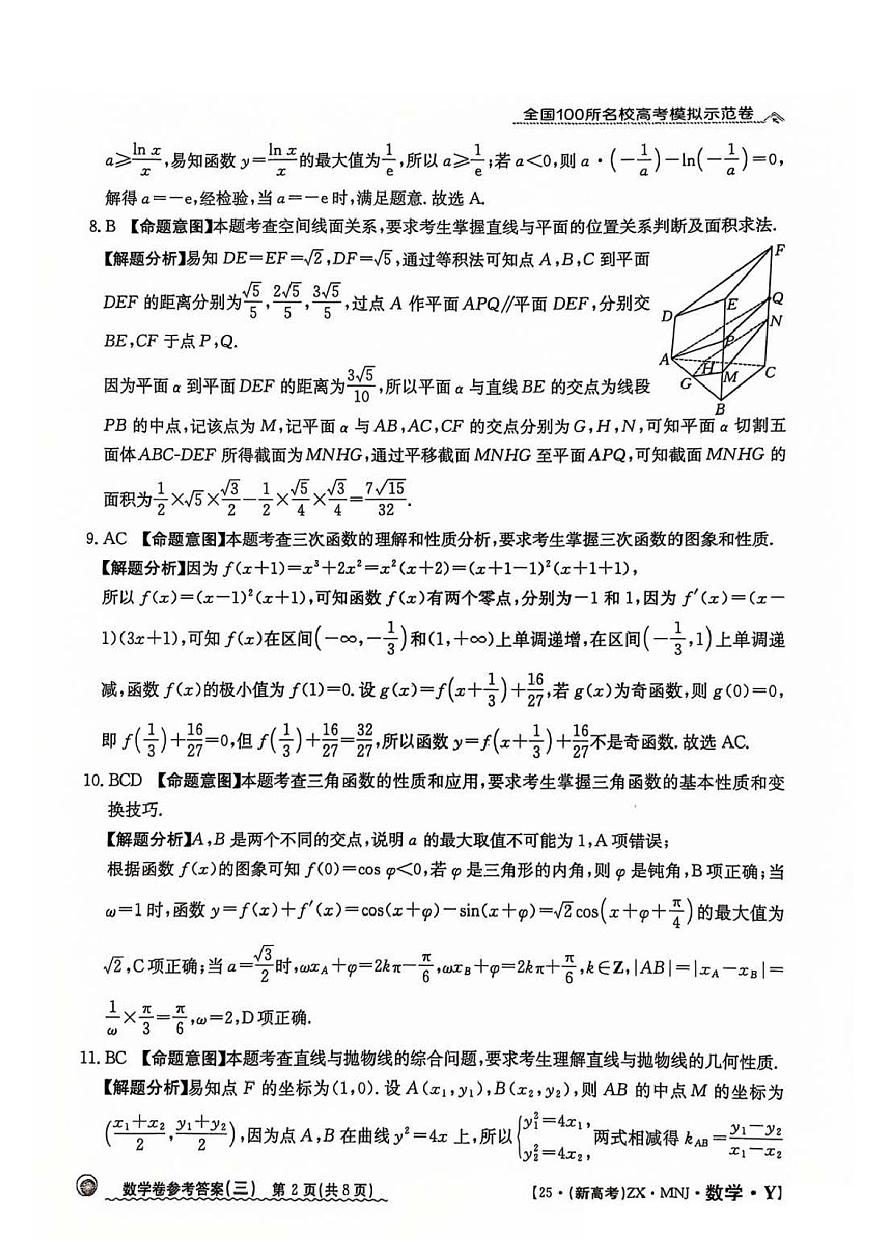 全国100所名校高考模拟示范卷
a≥ln x/x,易知函数 y=ln x/x的最大值为1/e,所以a≥1/e;若a<0,则a·(-1/a)-ln(-1/a)=0,
解得a=-e,经检验,当a=-e时,满足题意.故选A.
8.B 【命题意图】本题考查空间线面关系,要求考生掌握直线与平面的位置关系判断及面积求法.
【解题分析】易知DE=EF=√2,DF=√5,通过等积法可知点A,B,C到平面
DEF的距离分别为√5/5,2√5/5,3√5/5,过点A作平面APQ//平面DEF,分别交
BE,CF于点P,Q.
因为平面α到平面DEF的距离为3√5/10,所以平面α与直线BE的交点为线段
PB的中点,记该点为M,记平面α与AB,AC,CF的交点分别为G,H,N,可知平面α切割五
面体ABC-DEF所得截面为MNHG,通过平移截面MNHG至平面APQ,可知截面MNHG的
面积为1/2×√5×√3/2-1/2×√5/4×√3/4=7√15/32.
F
E
Q
D
N
P
A
H
M
C
G
B
9.AC 【命题意图】本题考查三次函数的理解和性质分析,要求考生掌握三次函数的图象和性质.
【解题分析】因为f(x+1)=x³+2x²=x²(x+2)=(x+1-1)²(x+1+1),
所以f(x)=(x-1)²(x+1),可知函数f(x)有两个零点,分别为-1和1,因为f′(x)=(x-
1)(3x+1),可知f(x)在区间(-∞,-1/3)和(1,+∞)上单调递增,在区间(-1/3,1)上单调递
减,函数f(x)的极小值为f(1)=0.设g(x)=f(x+1/3)+16/27,若g(x)为奇函数,则g(0)=0,
即f(1/3)+16/27=0,但f(1/3)+16/27=32/27,所以函数y=f(x+1/3)+16/27不是奇函数.故选AC.
10.BCD 【命题意图】本题考查三角函数的性质和应用,要求考生掌握三角函数的基本性质和变
换技巧.
【解题分析】A,B是两个不同的交点,说明a的最大取值不可能为1,A项错误;
根据函数f(x)的图象可知f(0)=cos φ<0,若φ是三角形的内角,则φ是钝角,B项正确;当
ω=1时,函数y=f(x)+f′(x)=cos(x+φ)-sin(x+φ)=√2cos(x+φ+π/4)的最大值为
√2,C项正确;当a=√3/2时,ωx_A+φ=2kπ-π/6,ωx_B+φ=2kπ+π/6,k∈Z,|AB|=|x_A-x_B|=
1/ω×π/3=π/6,ω=2,D项正确.
11.BC 【命题意图】本题考查直线与抛物线的综合问题,要求考生理解直线与抛物线的几何性质.
【解题分析】易知点F的坐标为(1,0).设A(x₁,y₁),B(x₂,y₂),则AB的中点M的坐标为
((x₁+x₂)/2,(y₁+y₂)/2),因为点A,B在曲线y²=4x上,所以{y₁²=4x₁, y₂²=4x₂, 两式相减得k_AB=(y₁-y₂)/(x₁-x₂)
数学卷参考答案(三) 第2页(共8页)
【25·(新高考)ZX·MNJ·数学·Y】